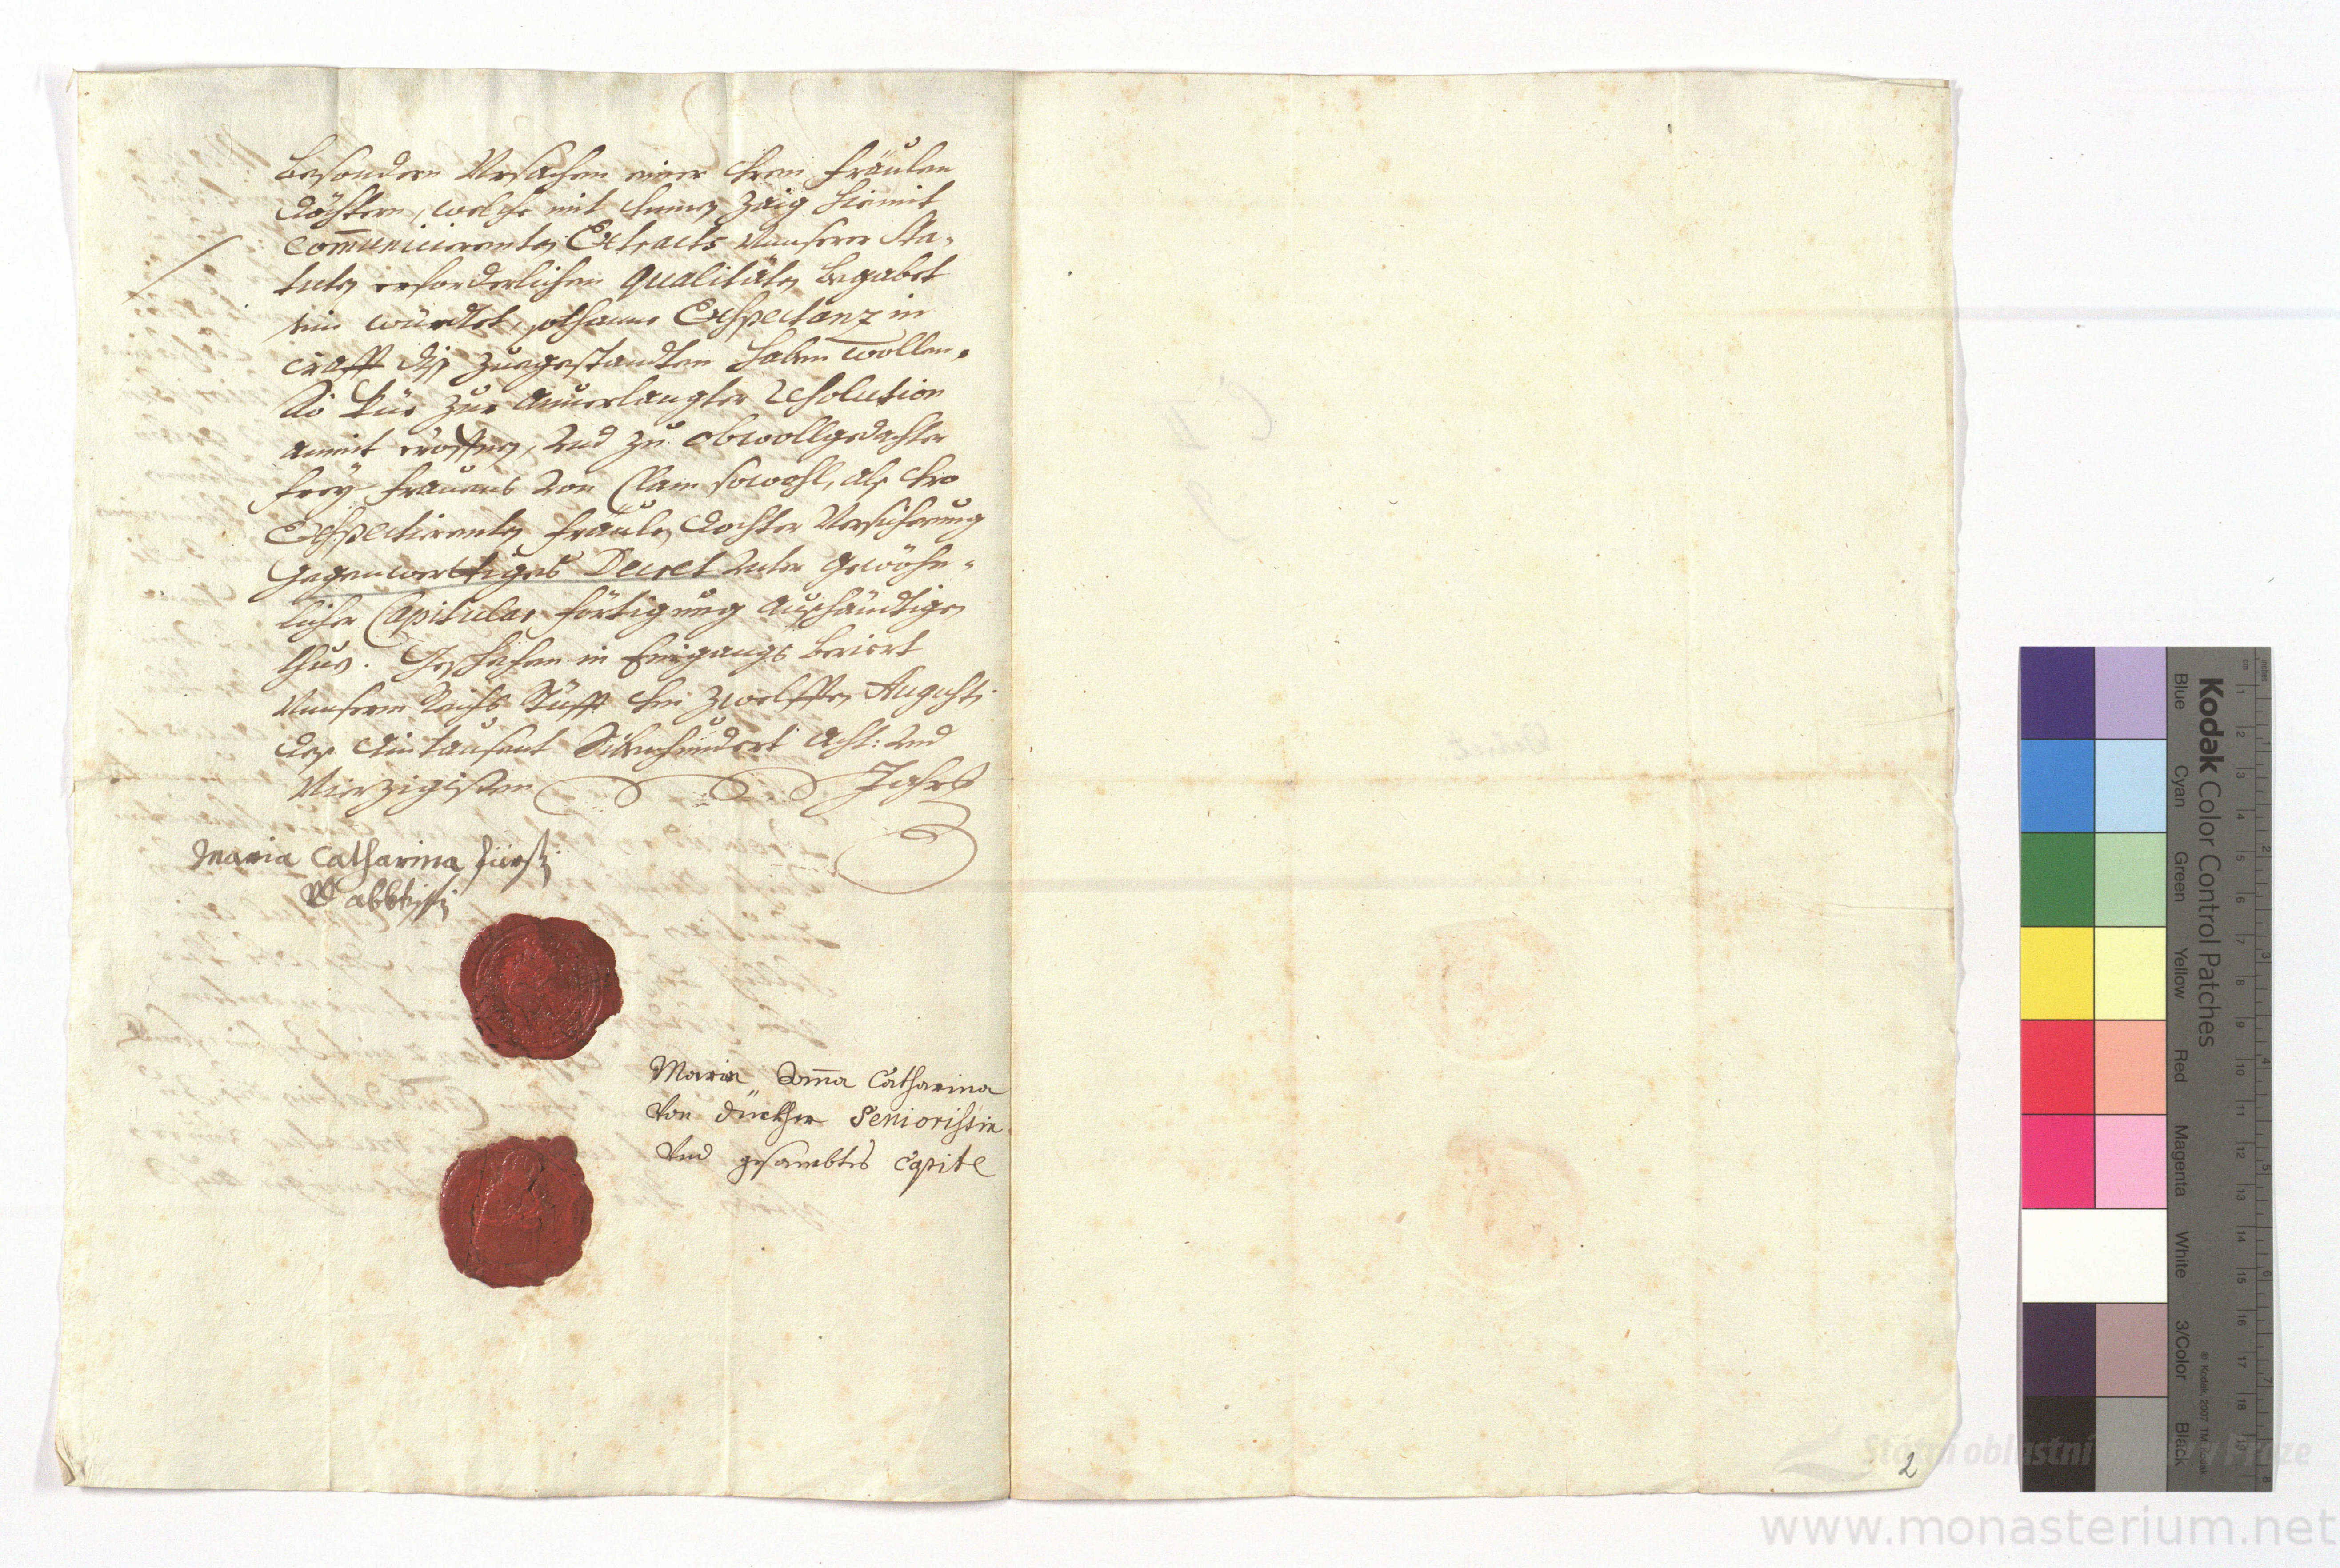 besondern Ursachen einer dero Fräulen
Töchtern, welche mit
communicierenten Extracts Unserer Sta-
tuten erforderlichen Qualitäten begabet
sein würdtet, sothane Exspectanz in
crafft diß zuegestandten haben wollen.
So Wür zur anverlangter Resolution
anmit eröffnen, und zu obwollgedachter
Frey Frauens von Clam sowohl, alß dero
Exspectirenten Fräulen Tochter Versicherung
gegenwertiges Decret unter gewöhn-
licher Capitular förtigung außhändigen
thun. Geschehen in Eingangs beriert
Unserem Reichs Stüfft den zwelfften Augusti
deß Aintausent Sibenhundert Acht: und
Vierzigisten Jahrs
Maria Catharina fürstin
Abbtissin
Maria Anna Catharina
von Dückher Seniorissin
und gesambtes Capitl
2
Kodak Color Control Patches
Blue Cyan Green Yellow Red Magenta White 3/Color Black
© Kodak, 2007 TM: Kodak
inches
cm
1 2 3 4 5 6 7 8 9 10 11 12 13 14 15 16 17 18 19
1 2 3 4 5 6 7 8
Státní oblastní archiv v Praze
www.monasterium.net